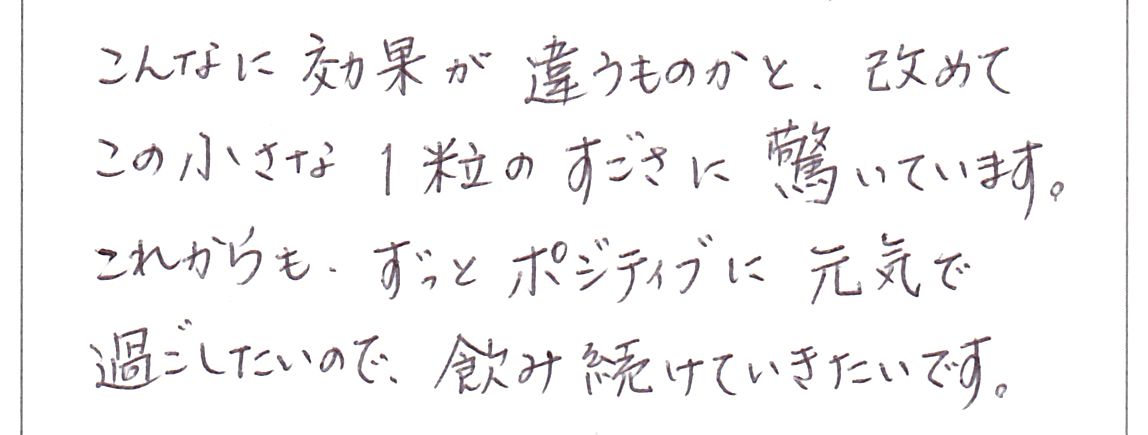 こんなに効果が違うものかと、改めて
この小さな1粒のすごさに驚いています。
これからも、ずっとポジティブに元気で
過ごしたいので、飲み続けていきたいです。